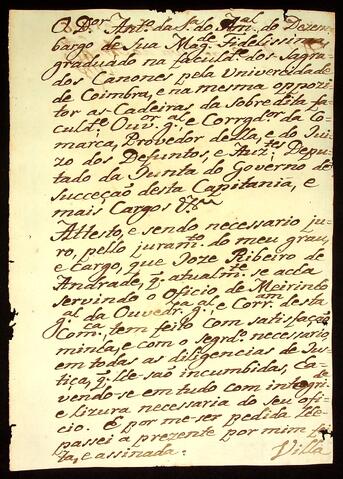 O D.or Ant.o da S.a do Am.al do Dezem
bargo de Sua Mag.e Fidelissima
graduado na faculd.e dos Sagra
dos Canones pela Univercidade
de Coimbra, e na mesma oppozi
tor as Cadeiras da sobredita fa
culd.e Ouv.or g.al e Corrg.dor da Co
marca, Provedor della, e do Jui
zo dos Defuntos, e Auz.tes Depu
tado da Junta do Governo de
Succeção desta Capitania, e
mais Cargos &.a
Attesto, e sendo necessario ju
ro, pello juram.to do meu grau,
e Cargo, que Joze Ribeiro de
Andrade, q. atualm.te se acha
servindo o Oficio de Meirinho
g.al da Ouved.ra g.al e Corr.am desta
Com.ca, tem feito com satisfação
minha, e com o segrd.o necessario
em todas as diligencias de Jus
tiça, q. lhe são incumbidas, ha
vendo-se em tudo com integrid.e
e lizura necessaria do seu ofi
cio. E por me ser pedida
passei a prezente por mim fei
ta, e assinada. Villa